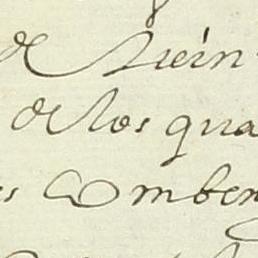 de Rein
de los qua
es Comben